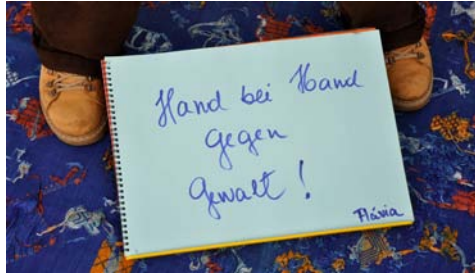 Hand bei Hand
gegen
Gewalt!
Flávia